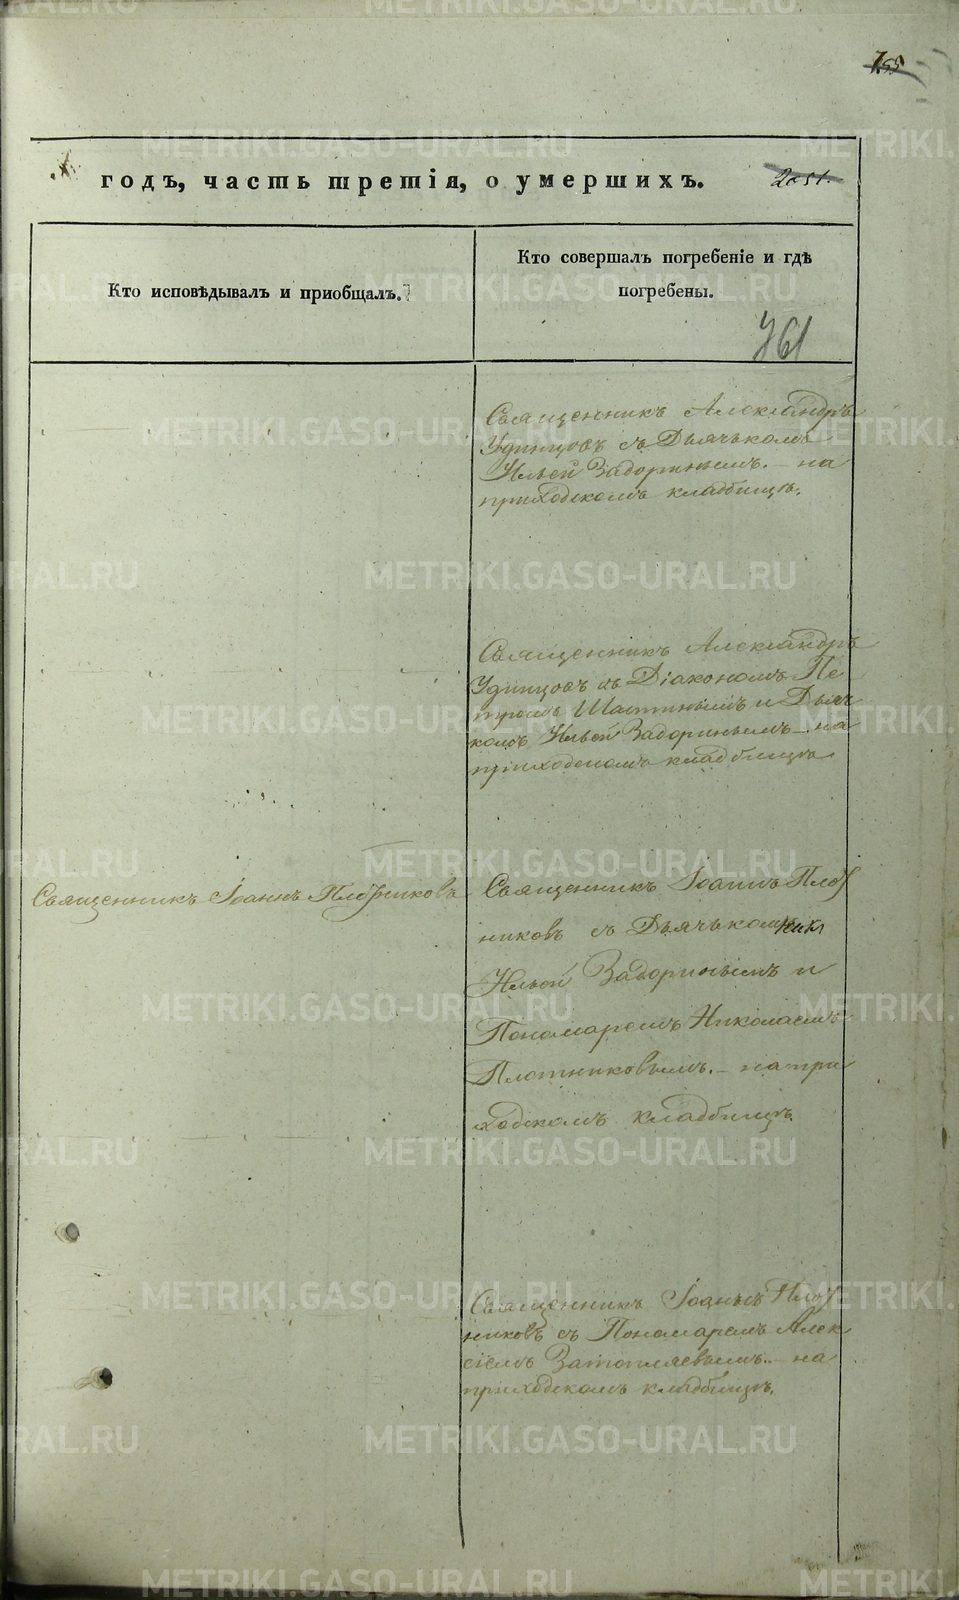 755
годъ, часть третія, о умершихъ.
2051.
Кто исповѣдывалъ и приобщалъ.
Кто совершалъ погребеніе и гдѣ
погребены.
761
Священникъ Александръ
Удинцовъ съ Дьячькомъ
Ильей Задоринымъ. – на
приходскомъ кладбищѣ.
Священникъ Александръ
Удинцовъ съ Діакономъ Пе
тромъ Шастинымъ и Дьяч
комъ Ильей Задоринымъ – на
приходскомъ кладбищѣ
Священникъ Іоаннъ Плотниковъ
Священникъ Іоаннъ Плот
никовъ съ Дьячькомъ
Ильей Задоринымъ и
Пономаремъ Николаемъ
Плотниковымъ. – на при
ходскомъ кладбищѣ.
Священникъ Іоаннъ Плот
никовъ съ Пономаремъ Алек
сіемъ Затопляевымъ. – на
приходскомъ кладбищѣ.
METRIKI.GASO-URAL.RU